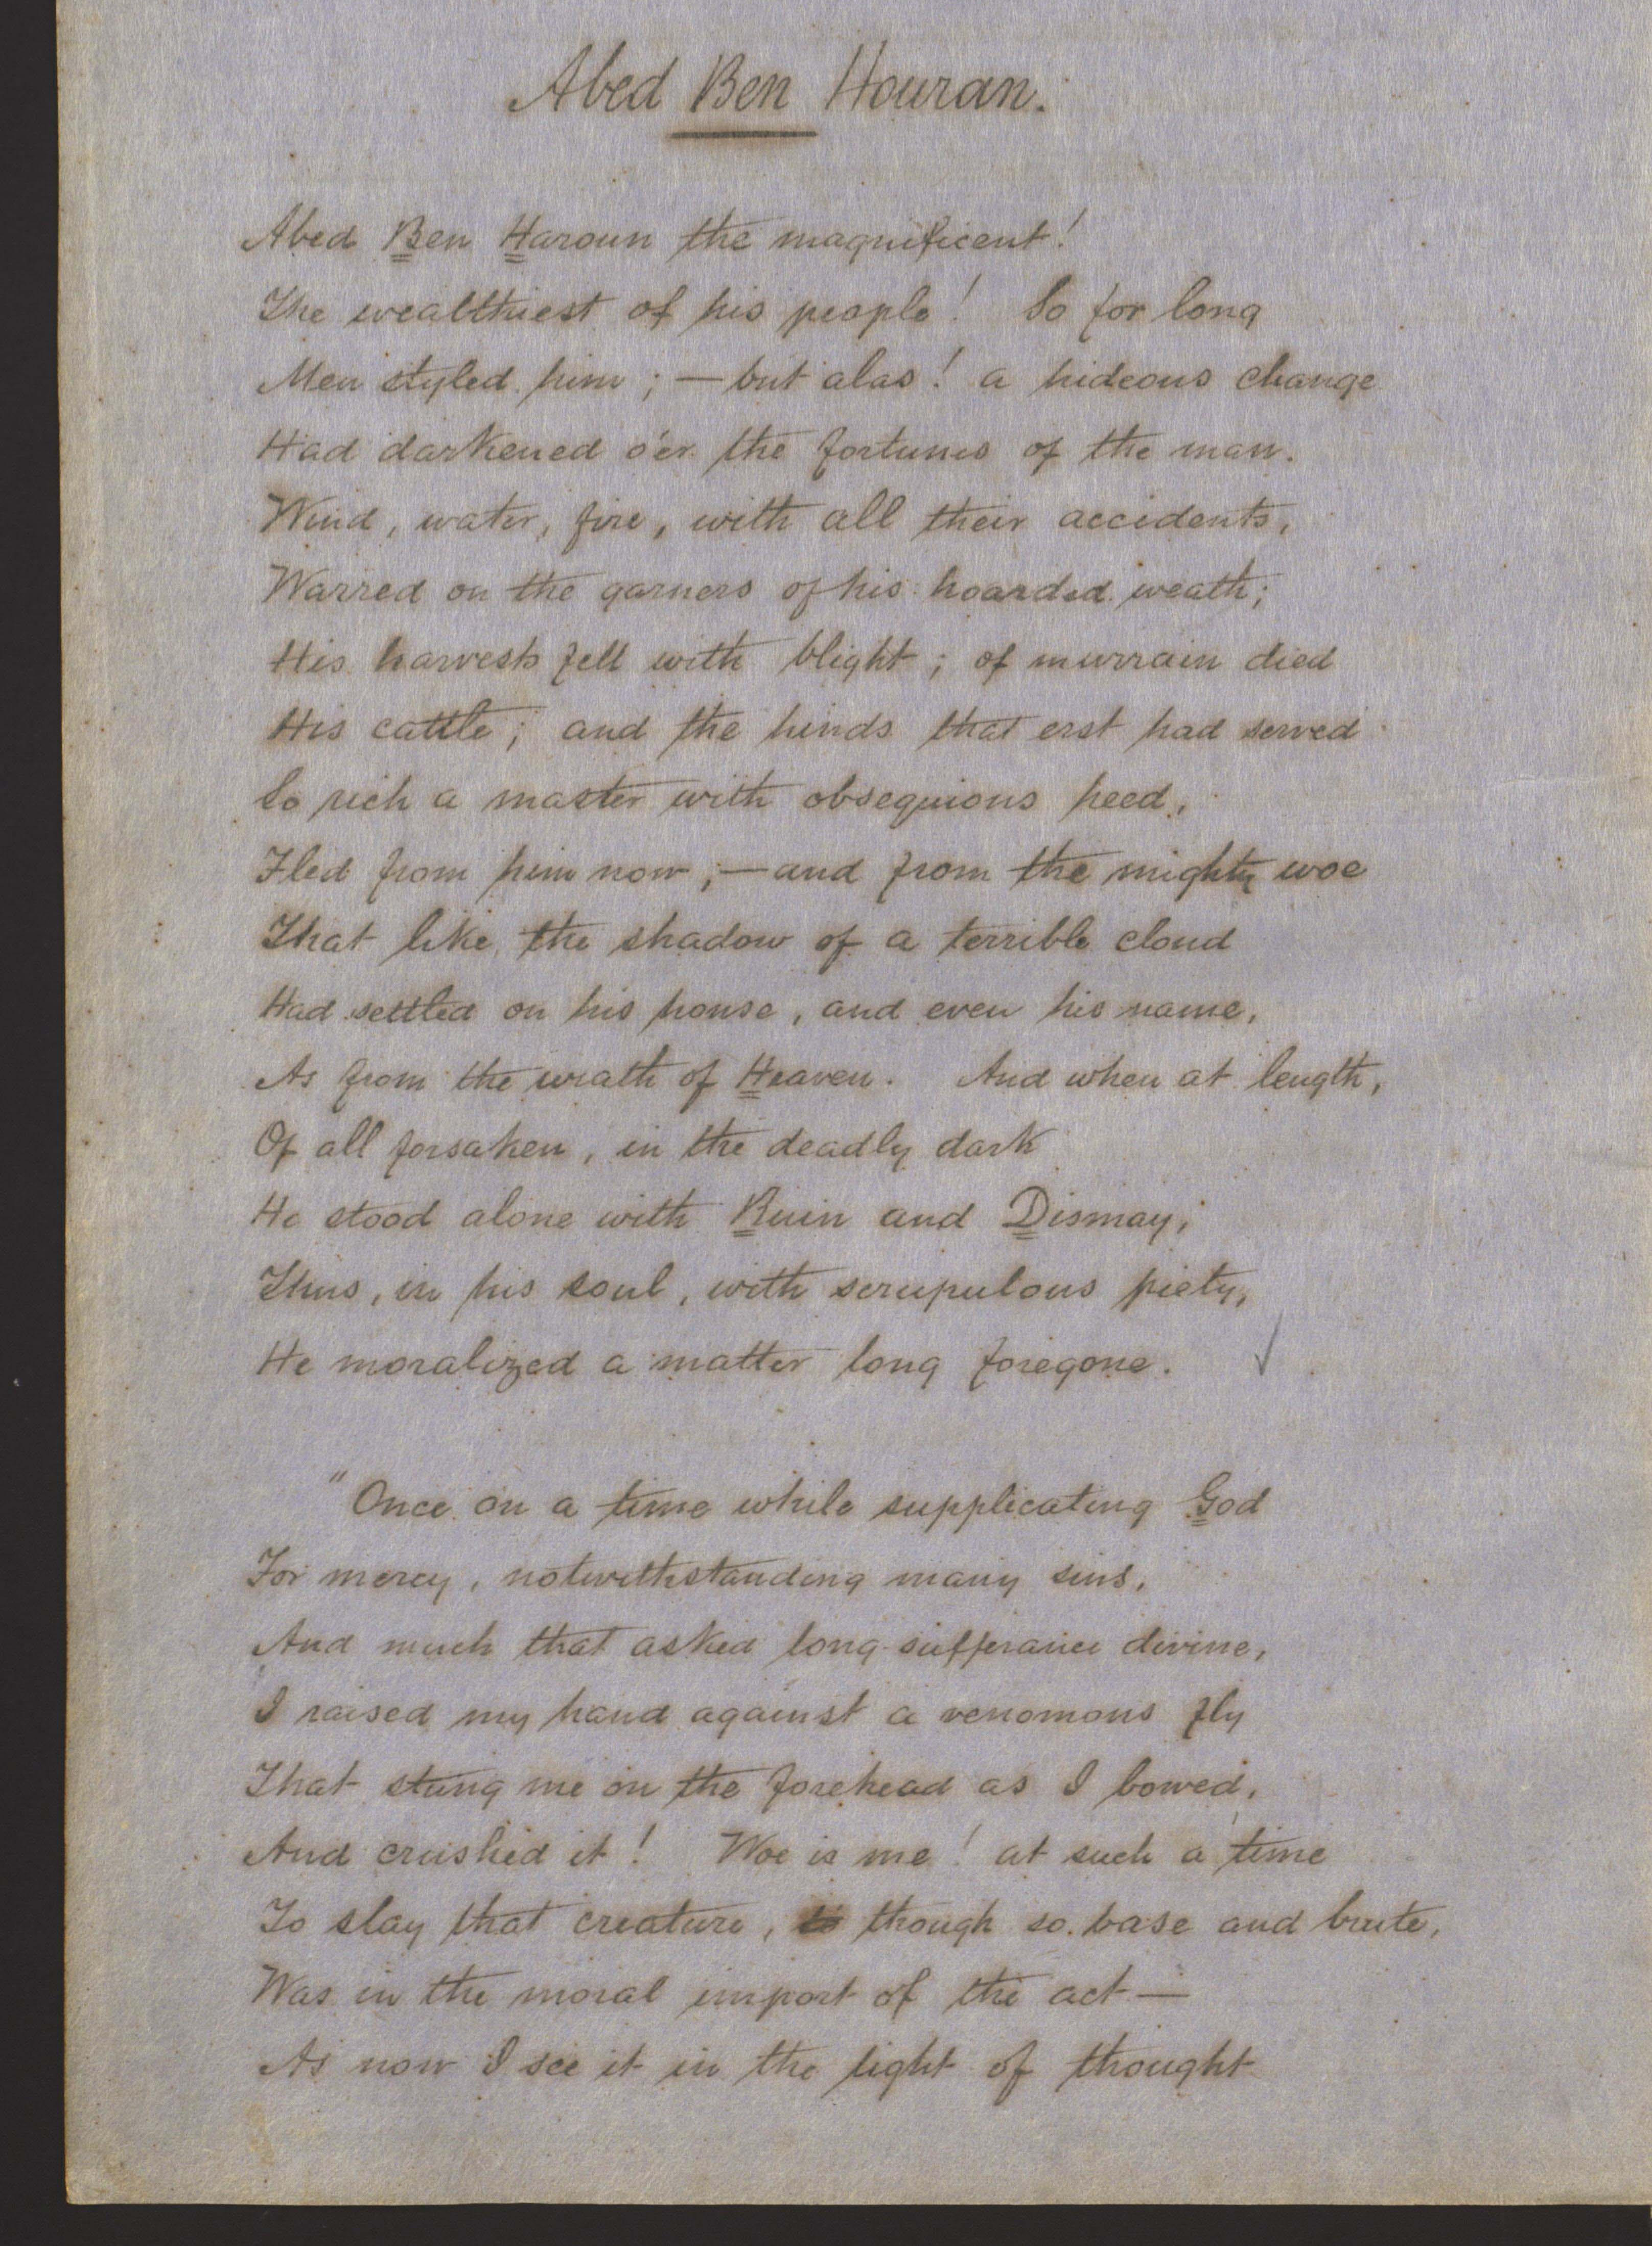 Abed Ben Houran.
Abed Ben Haroun the magnificent!
The wealthiest of his people! So for long
Men styled him; — but alas! a hideous change
Had darkened o'er the fortunes of the man.
Wind, water, fire, with all their accidents,
Warred on the garners of his hoarded weath;
His harvests fell with blight; of murrain died
His cattle; and the hinds that erst had served
So rich a master with obsequious heed,
Fled from him now; — and from the mighty woe
That like the shadow of a terrible cloud
Had settled on his house, and even his name,
As from the wrath of Heaven. And when at length,
Of all forsaken, in the deadly dark
He stood alone with Ruin and Dismay,
Thus, in his soul, with scrupulous piety,
He moralized a matter long foregone.
"Once on a time while supplicating God
For mercy, notwithstanding many sins,
And much that asked long-sufferance divine,
I raised my hand against a venomous fly
That stung me on the forehead as I bowed,
And crushed it! Woe is me! at such a time
To slay that creature, though so base and brute,
Was in the moral import of the act —
As now I see it in the light of thought